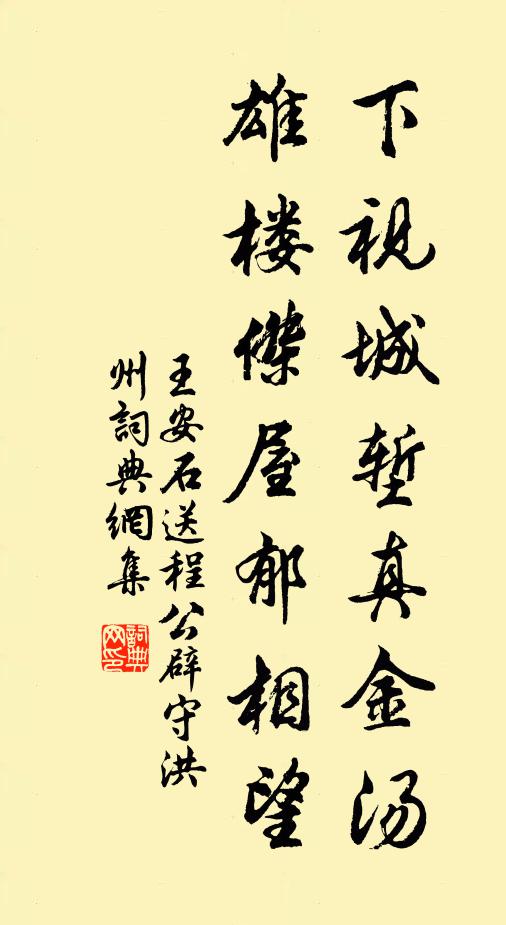 下视城堑真金汤
雄楼傑屋郁相望
王安石送程公辟守洪
州詞典網集
詞典网印